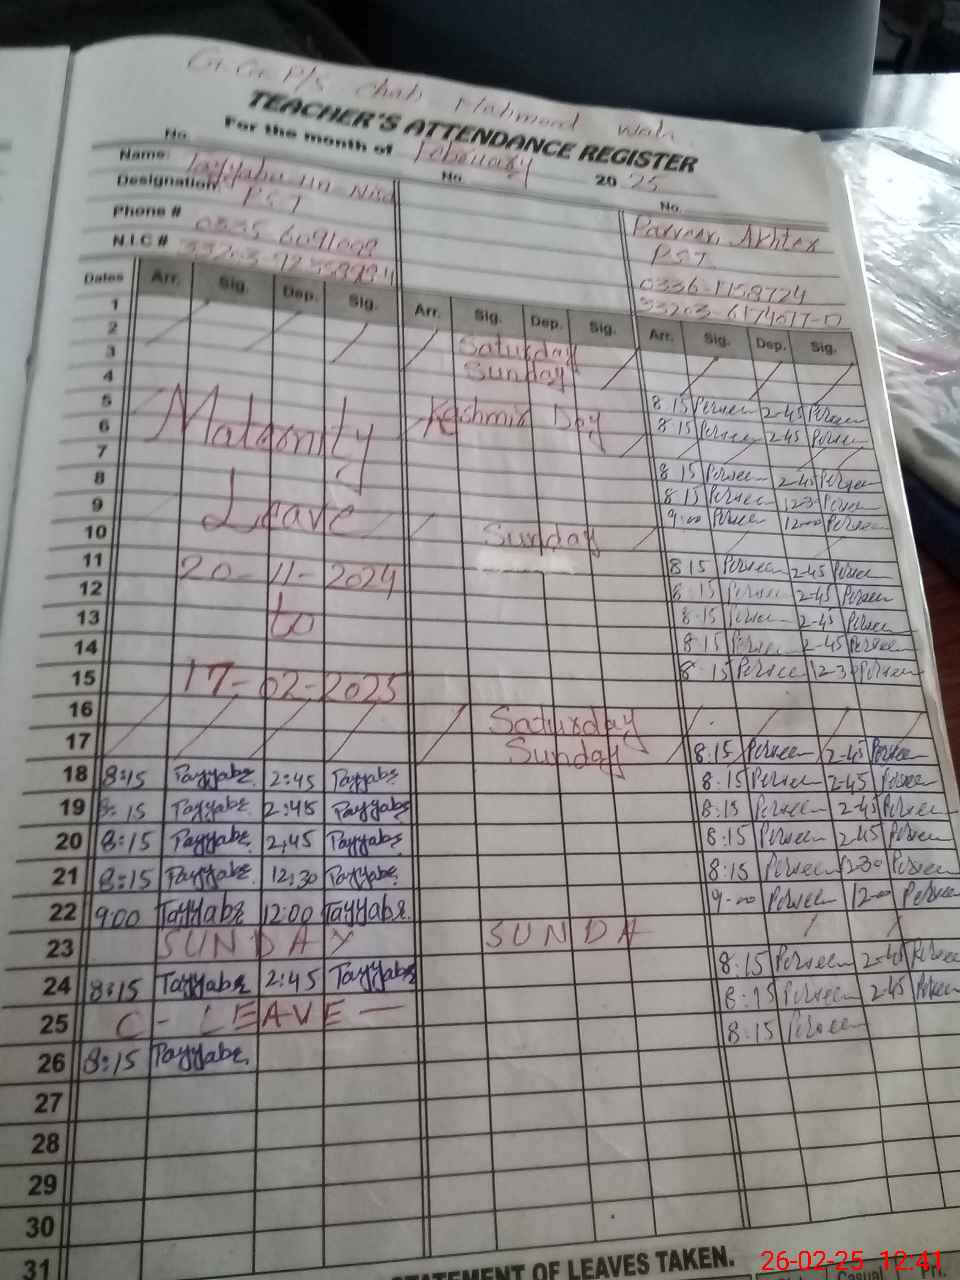 G.G.P/S Chah Mahmood Wala
TEACHER'S ATTENDANCE REGISTER
For the month of February 2025
No. No. No.
Name: Tayyaba un Nisa Parveen Akhter
Designation PST PST
Phone # 0335-6091009 0336-1158724
N.I.C # 33203-6174617-0
Dates Arr. Sig. Dep. Sig. Arr. Sig. Dep. Sig. Arr. Sig. Dep. Sig.
1 Saturday
2 Sunday
3 8:15 Perveen 2-45 Perveen
4 8:15 Perveen 2-45 Perveen
5 Maternity Kashmir Day
6 8:15 Perveen 2-45 Perveen
7 8:15 Perveen 12-30 Perveen
8 Leave 9:00 Perveen 12-00 Perveen
9 Sunday
10 20-11-2024 8:15 Perveen 2-45 Perveen
11 8:15 Perveen 2-45 Perveen
12 to 8:15 Perveen 2-45 Perveen
13 8:15 Perveen 2-45 Perveen
14 17-02-2025 8:15 Perveen 12-30 Perveen
15 Saturday
16 Sunday
17 8:15 Perveen 2-45 Perveen
18 8:15 Tayyaba 2:45 Tayyaba 8:15 Perveen 2-45 Perveen
19 8:15 Tayyaba 2:45 Tayyaba 8:15 Perveen 2-45 Perveen
20 8:15 Tayyaba 2:45 Tayyaba 8:15 Perveen 2-45 Perveen
21 8:15 Tayyaba 12:30 Tayyaba 8:15 Perveen 12-30 Perveen
22 9:00 Tayyaba 12:00 Tayyaba 9-00 Perveen 12-00 Perveen
23 SUNDAY SUNDA
24 8:15 Tayyaba 2:45 Tayyaba 8:15 Perveen 2-45 Perveen
25 C - LEAVE — 8:15 Perveen 2-45 Perveen
26 8:15 Tayyaba 8:15 Perveen
27
28
29
30
31
STATEMENT OF LEAVES TAKEN.
Casual
26-02-25 12:41